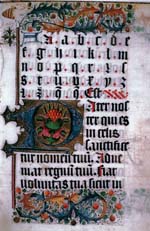 A a b c d e f
g h i k l m
n o p q r
s t u v x y
Est
Pater nos
ter qui es
in celis
sanctifice
tur nomen tuū. Adue
niat regnū tuū. fiat
voluntas tua sicut in